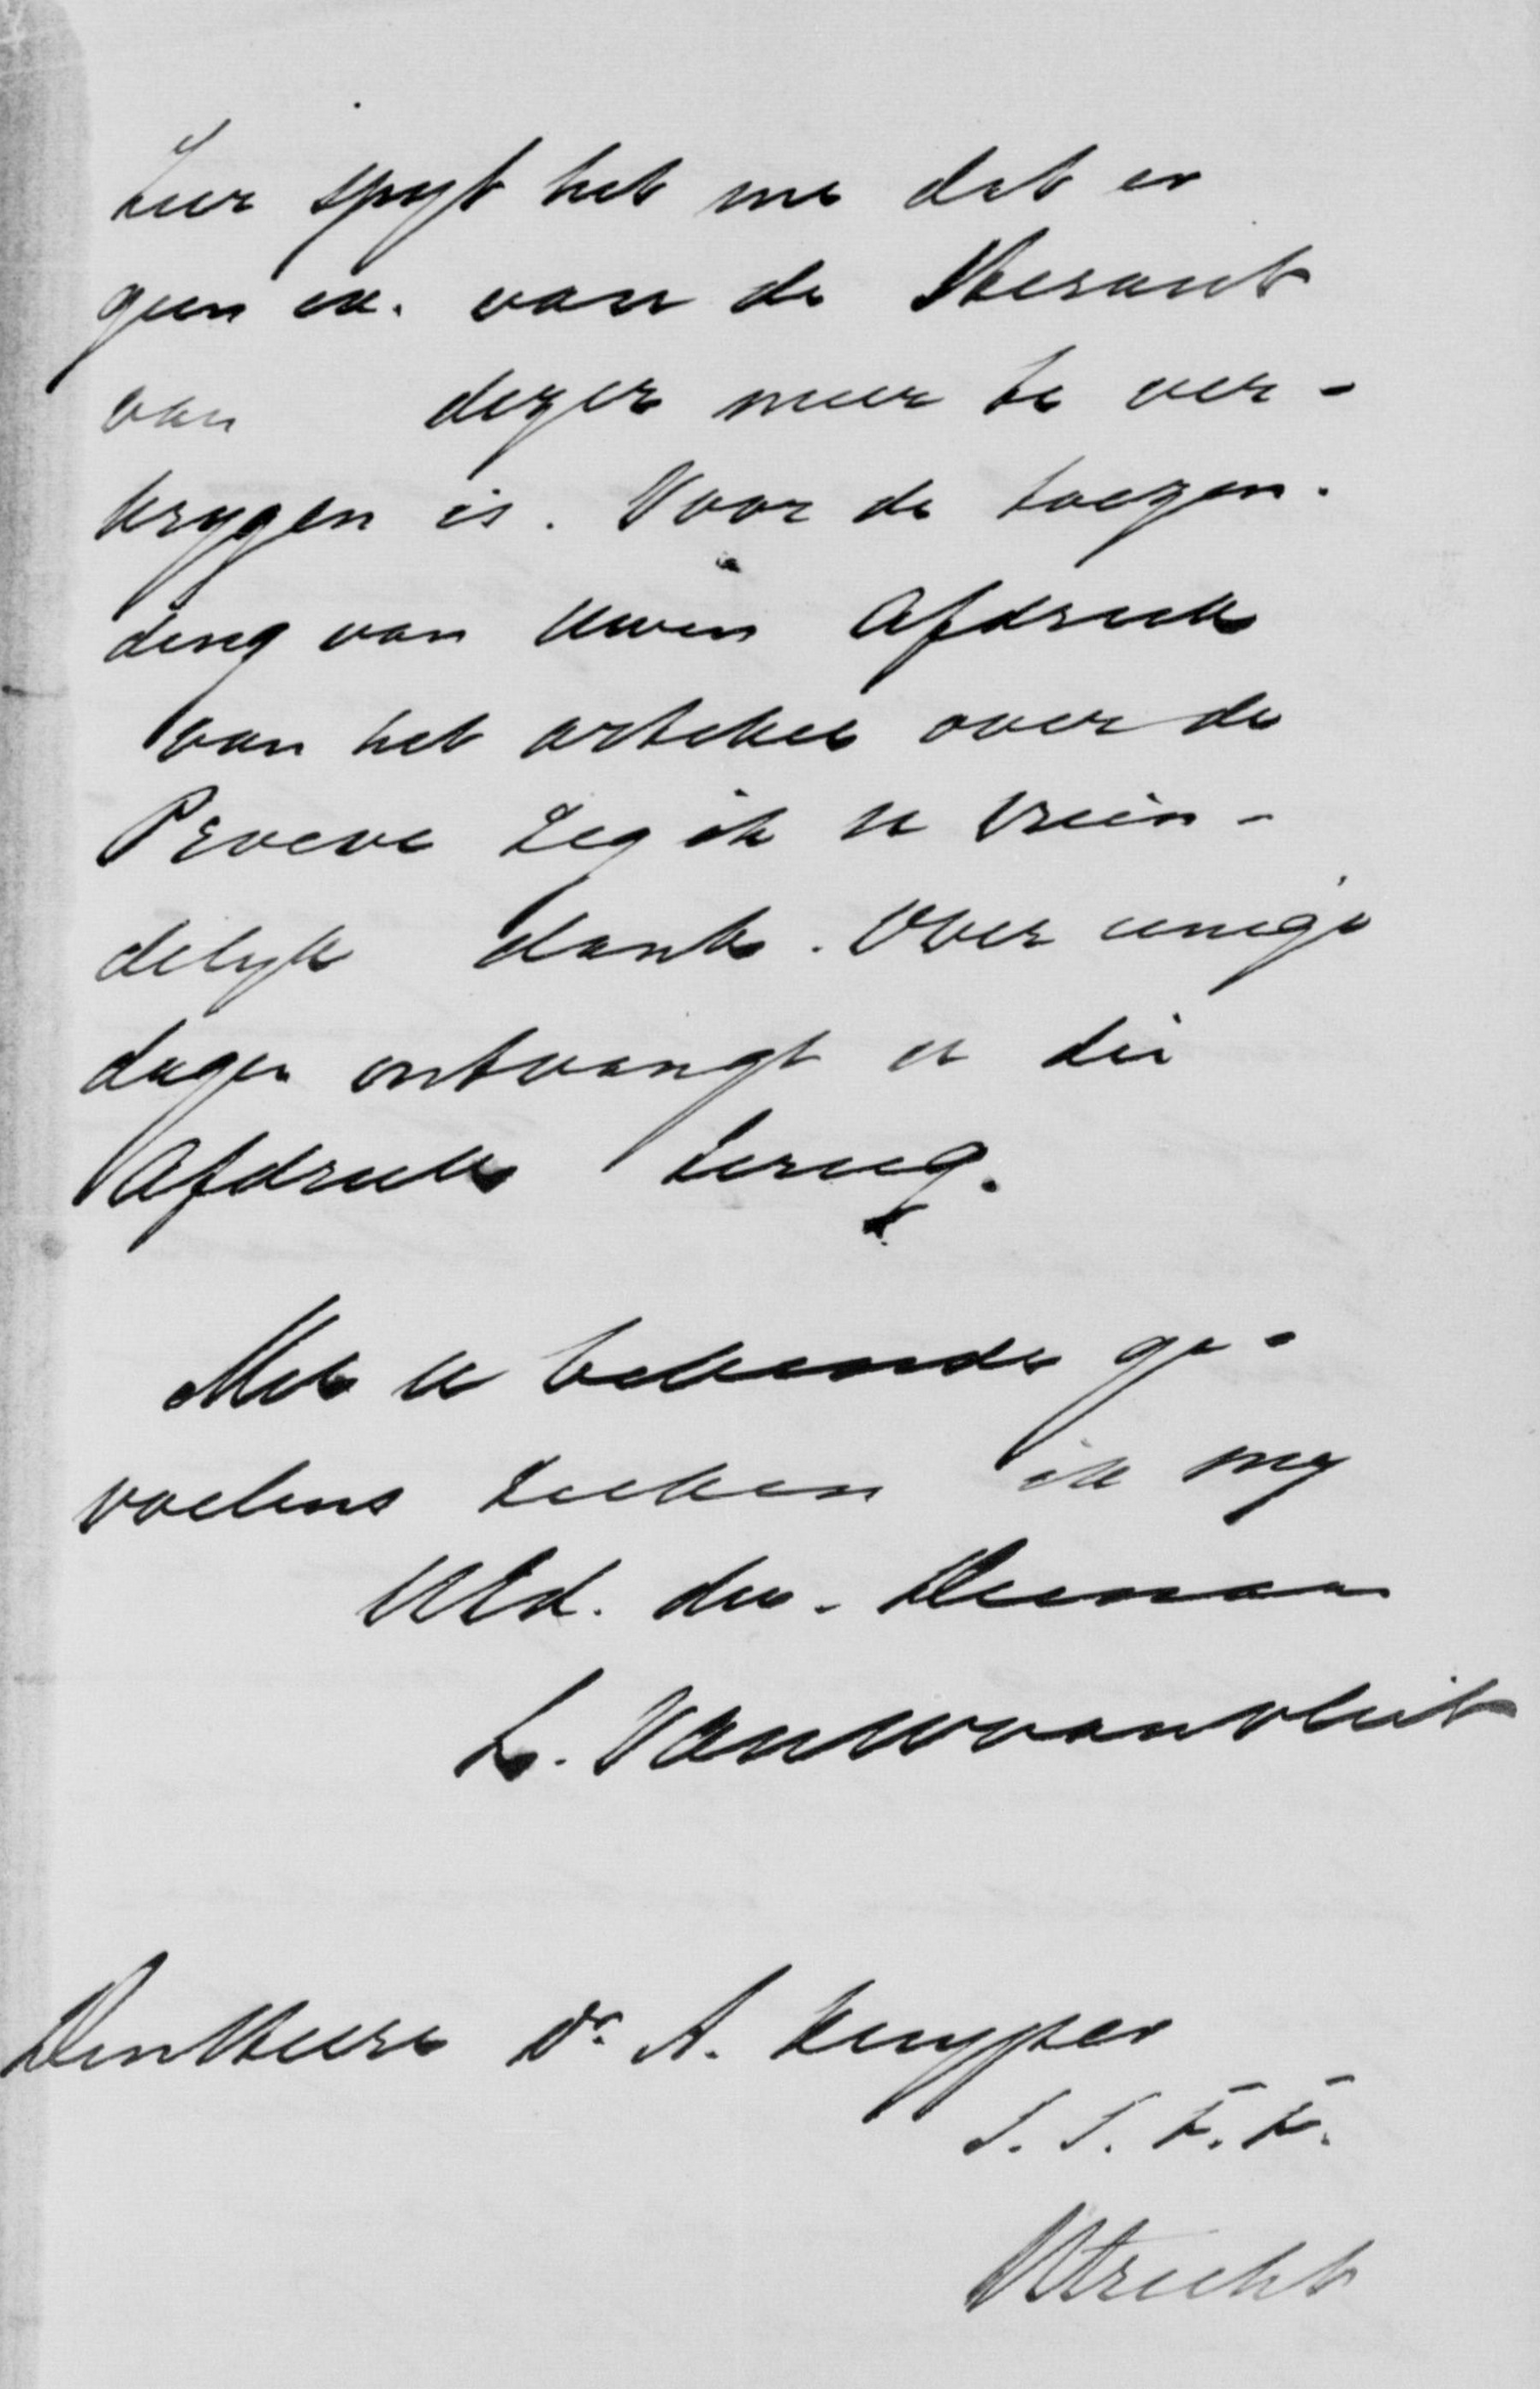 Zeer spyt het me dat er
geen ex. van de Heraut
van dezer meer te ver-
krygen is. Voor de toezen-
ding van Uwen Afdruk
van het artikel over de
Proeve zeg ik u vrien-
delyk dank. Over eenige
dagen ontvangt u die
Afdruk terug.
Met u bekende ge-
voelens teeken ik my
UEd. dw. Dienaar
L. Van
Den Heere Dr. A. Kuyper
S. S. T. T.
Utrecht